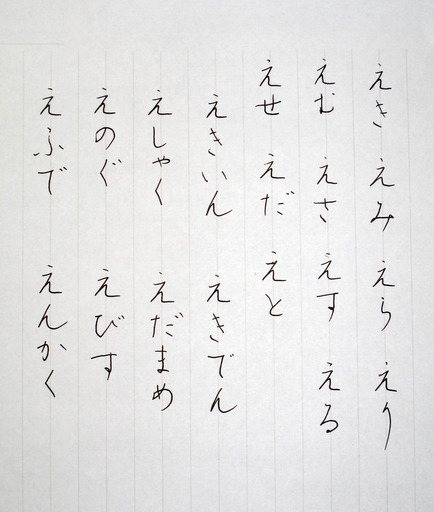 えき えみ えら えり
えむ えさ えす える
えせ えだ えと
えきいん えきでん
えしゃく えだまめ
えのぐ えびす
えふで えんかく